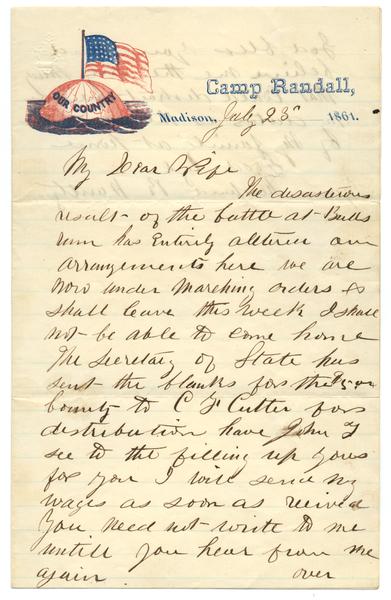 OUR COUNTRY
Camp Randall,
Madison, July 23 1861.
My Dear Wife
The disasterous
result of the battle at Bulls
run has Entirely alltered our
arrangements here we are
now under Marching orders &
shall leave this week I shall
not be able to come home
The Secretary of State has
sent the blanks for the $5 00
bounty to C F Cutter for
distribution have John F
see to the filling up yours
for you I will send my
wages as soon as recived
You need not write to me
untill you hear from me
again over